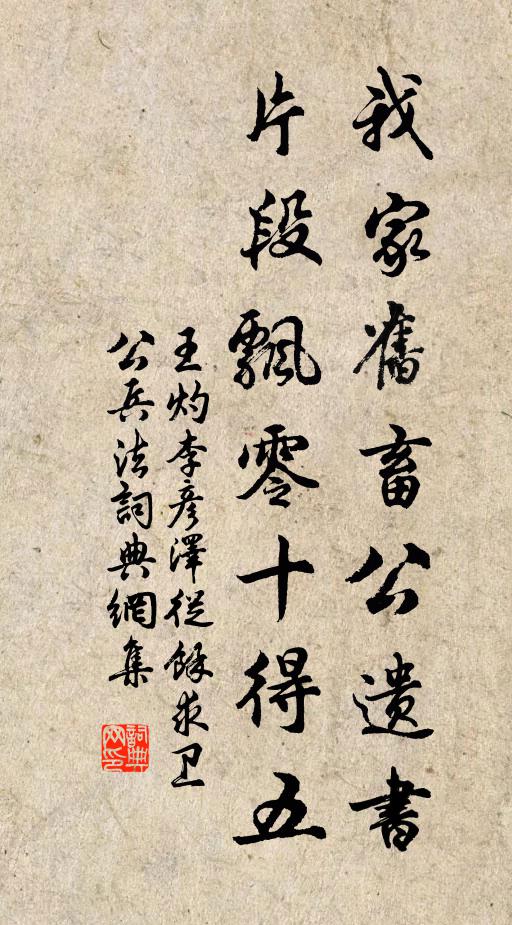 我家舊畜公遺書
片段飄零十得五
王灼李彦澤從餘求卫
公兵法詞典網集
詞典
网印